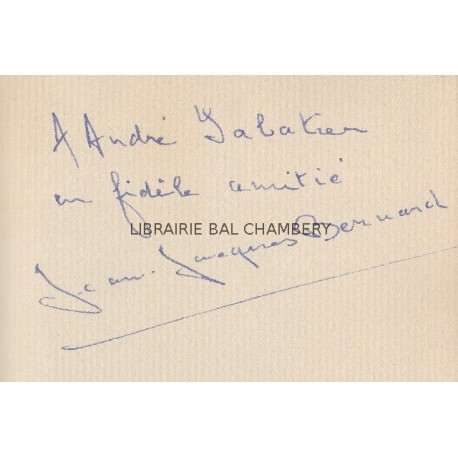 A André Sabatier
en fidèle amitié
LIBRAIRIE BAL CHAMBERY
Jean-Jacques Bernard